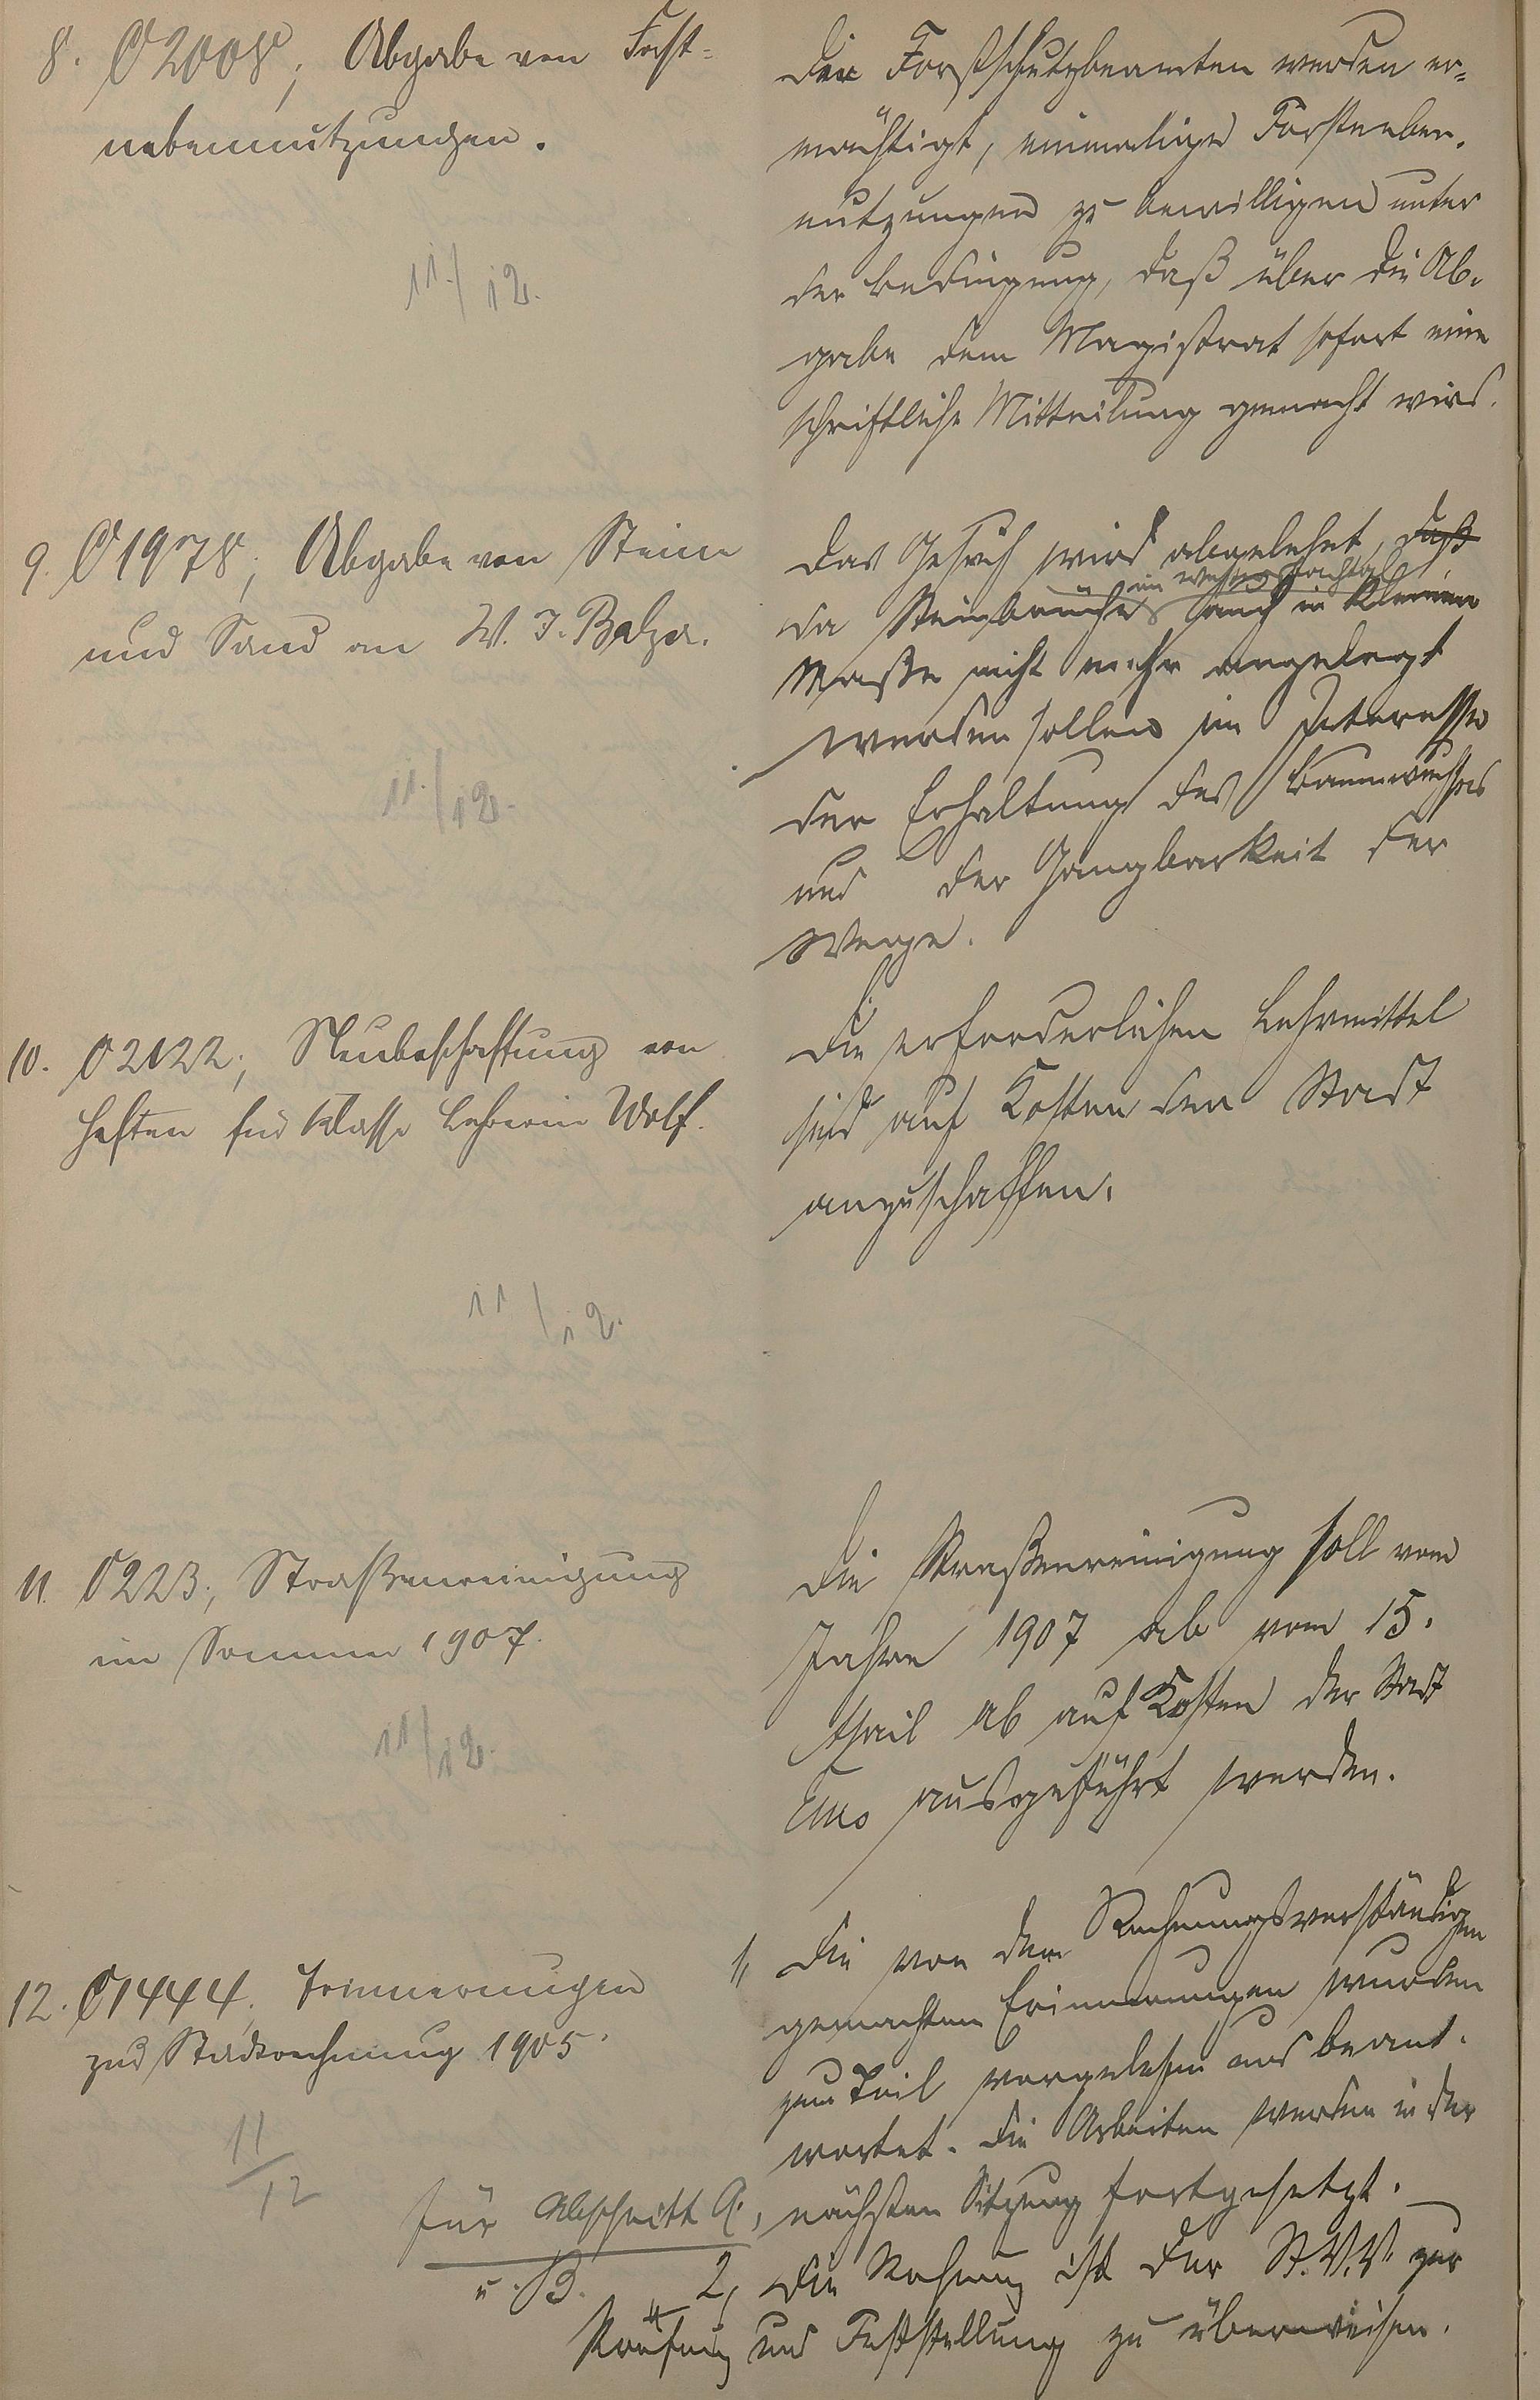 8. O 2008; Abgabe von Forst=
nebennutzungen.
11./12.
Die Forstschutzbeamten werden er=
mächtigt, einmalige Forstneben.
nutzungen zu bewilligen unter
der Bedingung, daß über die Ab.
gabe dem Magistrat sofort eine
schriftliche Mitteilung gemacht wird.
9. O 1978; Abgabe von Steine
und Sand an W. J. Balzer.
11./12.
Das Gesuch wird abgelehnt, daß
im
da Steinbrüche auch in kleinem
Maße nicht mehr angelegt
werden sollen im Interesse
der Erhaltung des Baumwuchses
und der Gangbarkeit der
Wege.
10. O 2122; Neubeschaffung von
Heften für Klasse Lehrerin Wolf.
11/12.
Die erforderlichen Lehrmittel
sind auf Kosten der Stadt
anzuschaffen.
11. O 223; Straßenreinigung
im Sommer 1907.
11/12.
Die Straßenreinigung soll vom
Jahre 1907 ab vom 15.
April ab auf Kosten der Stadt
Ems ausgeführt werden.
12. O 1444; Erinnerungen
zur Stadtrechnung 1905.
11/12
Für Abschnitt A.
u. B.
1, Die von dem Rechnungsverständigen
gemachten Erinnerungen wurden
zum Teil vorgelesen und beant.
wortet. Die Arbeiten werden in der
nächsten Sitzung fortgesetzt.
2, Die Rechnung ist der St.V.V. zur
Prüfung und Feststellung zu überweisen.